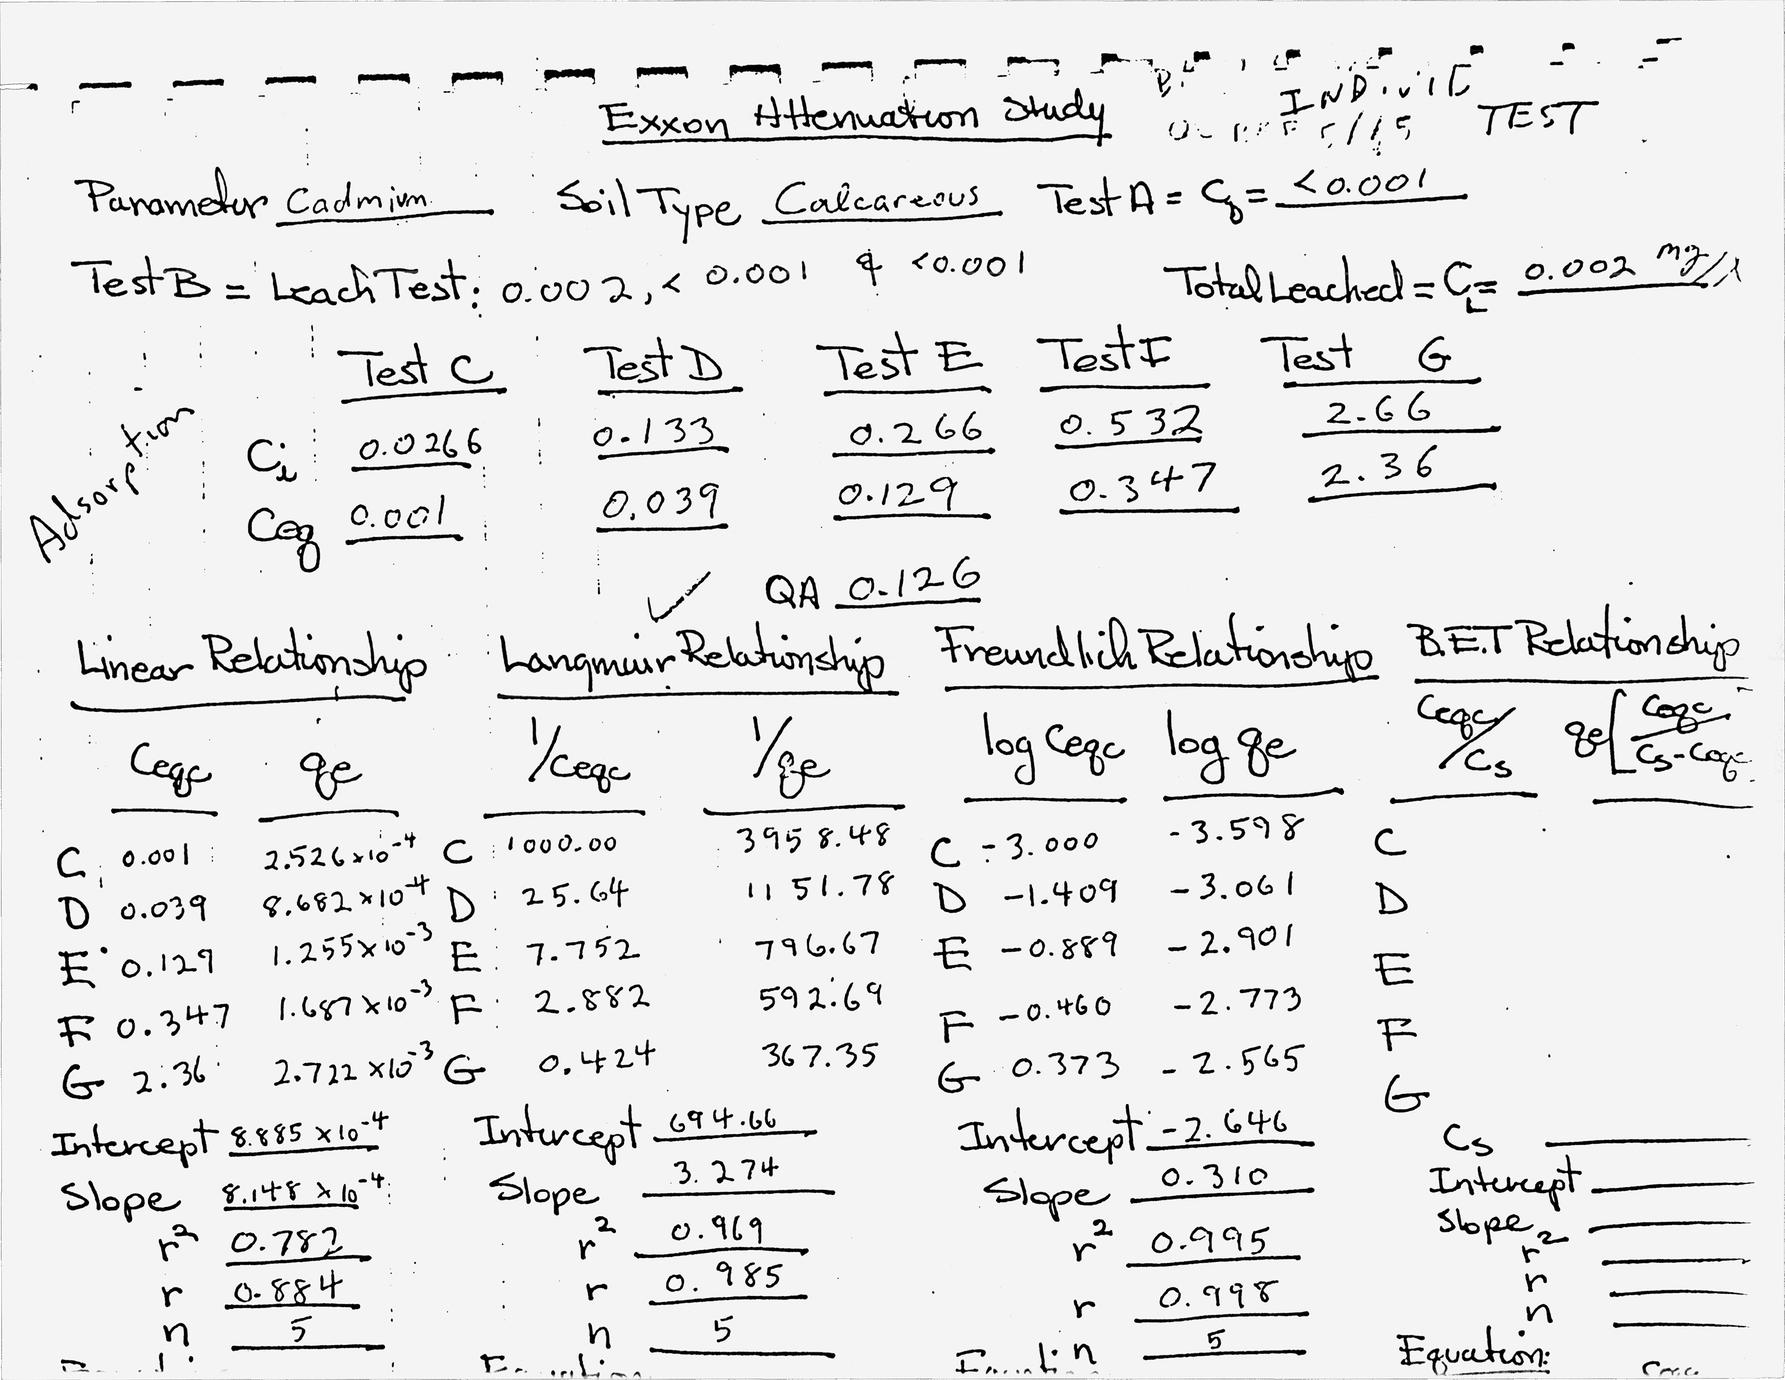 Exxon Attenuation Study
TEST
Parameter Cadmium Soil Type Calcareous Test A = C₀ = <0.001
Test B = Leach Test: 0.002, < 0.001 & <0.001 Total Leached = C_L = 0.002 mg/l
Test C Test D Test E Test F Test G
Adsorption
Ci 0.0266 0.133 0.266 0.532 2.66
Ceq 0.001 0.039 0.129 0.347 2.36
✓ QA 0.126
Linear Relationship Langmuir Relationship Freundlich Relationship B.E.T Relationship
Ceqc qe 1/Ceqc 1/qe log Ceqc log qe Ceqc/Cs qe[Ceqc/Cs-Ceqc
C 0.001 2.526x10⁻⁴ C 1000.00 3958.48 C -3.000 -3.598 C
D 0.039 8.682x10⁻⁴ D 25.64 1151.78 D -1.409 -3.061 D
E 0.129 1.255x10⁻³ E 7.752 796.67 E -0.889 -2.901 E
F 0.347 1.687x10⁻³ F 2.882 592.69 F -0.460 -2.773 F
G 2.36 2.722x10⁻³ G 0.424 367.35 G 0.373 -2.565 G
Intercept 8.885x10⁻⁴ Intercept 694.66 Intercept -2.646 Cs
Slope 8.148x10⁻⁴ Slope 3.274 Slope 0.310 Intercept
r² 0.782 r² 0.969 r² 0.995 Slope
r 0.884 r 0.985 r 0.998 r²
n 5 n 5 n 5 r
n
Equation: